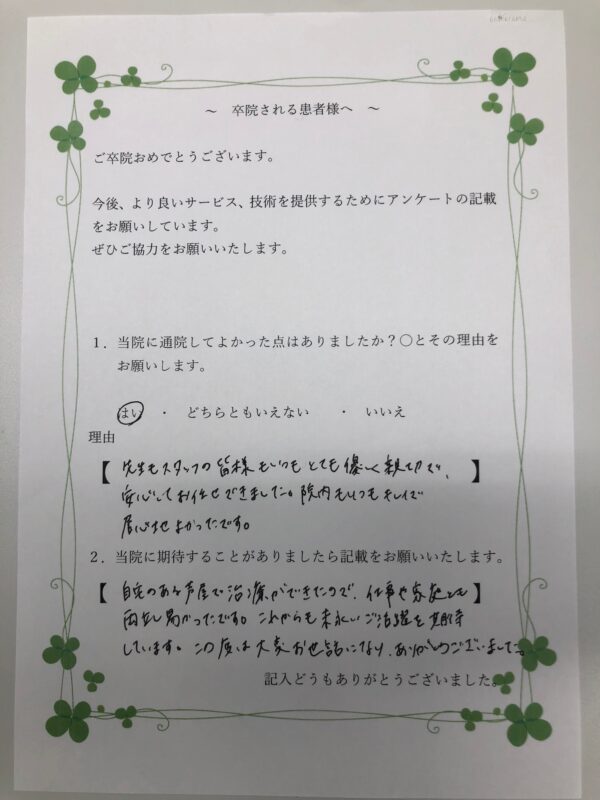 ～ 卒院される患者様へ ～
ご卒院おめでとうございます。
今後、より良いサービス、技術を提供するためにアンケートの記載
をお願いしています。
ぜひご協力をお願いいたします。
1．当院に通院してよかった点はありましたか？〇とその理由を
お願いします。
はい ・ どちらともいえない ・ いいえ
理由
【 先生もスタッフの皆様もいつもとても優しく親切で、 】
安心してお任せできました。院内もいつもキレイで
居心地よかったです。
2．当院に期待することがありましたら記載をお願いいたします。
【 自宅のある芦屋で治療ができたので、仕事や家庭とも 】
両立し易かったです。これからも末永いご活躍を期待
しています。この度は大変お世話になり、ありがとうございました。
記入どうもありがとうございました。